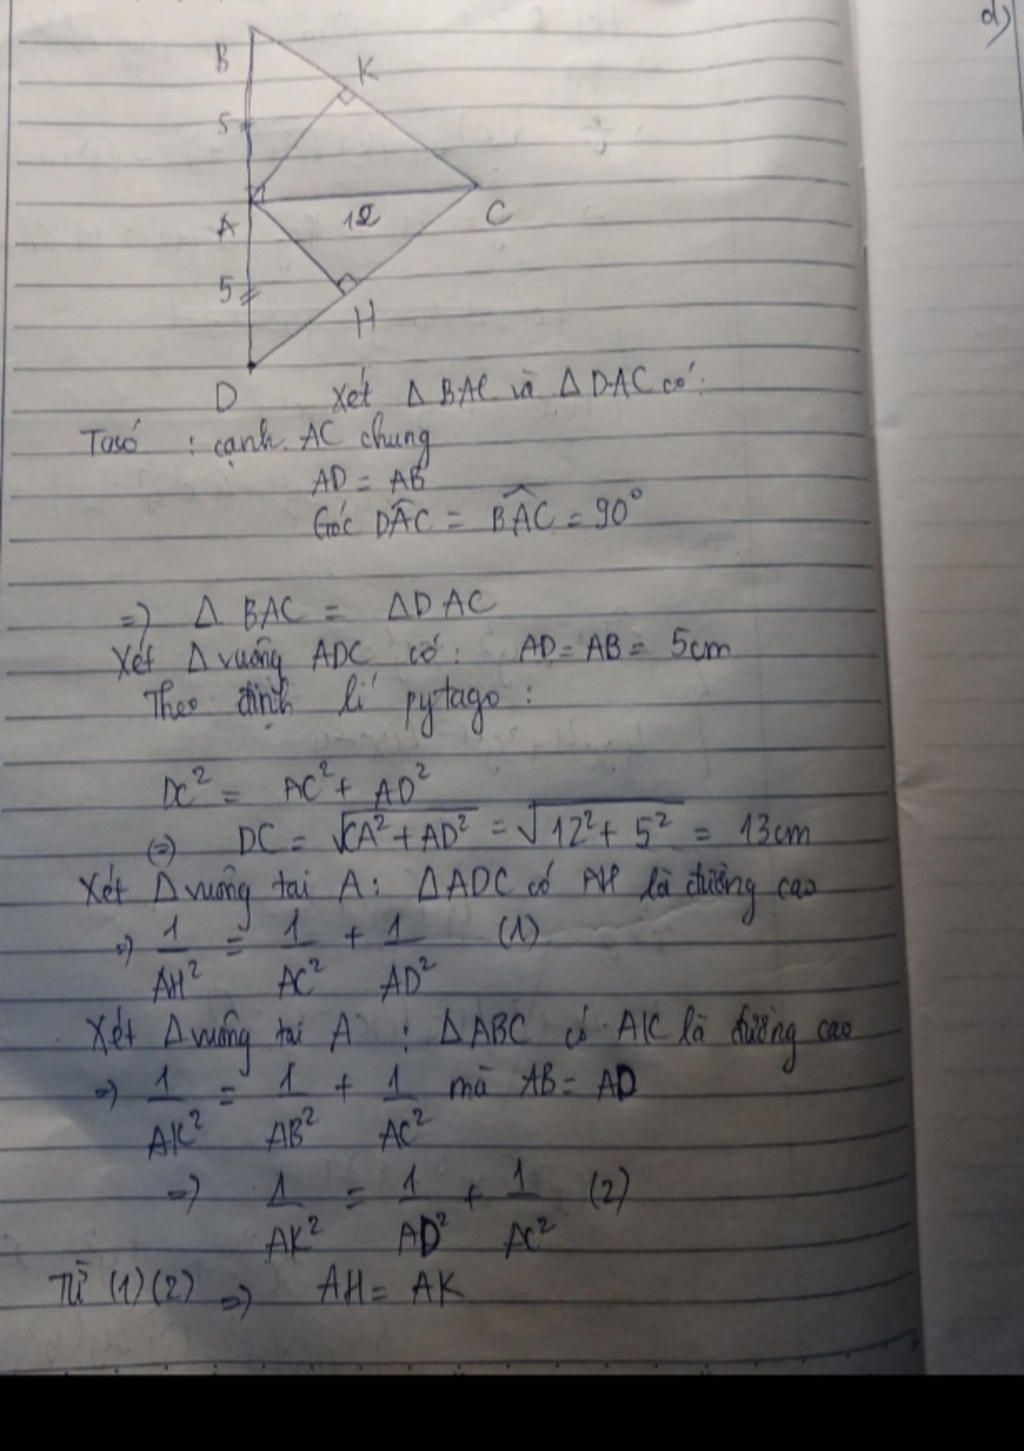 d)
B
K
5
A
12
C
5
H
D
Xét Δ BAC và Δ DAC có:
Ta có : cạnh AC chung
AD = AB
Góc DÂC = BÂC = 90°
=) Δ BAC = ΔDAC
Xét Δ vuông ADC có: AD = AB = 5cm
Theo định lí pytago :
DC² = AC² + AD²
(=) DC = √CA² + AD² = √12² + 5² = 13cm
Xét Δ vuông tai A : ΔADC có AH là đường cao
=) 1/AH² = 1/AC² + 1/AD² (1)
Xét Δ vuông tai A : ΔABC có AK là đường cao
=) 1/AK² = 1/AB² + 1/AC² mà AB = AD
=) 1/AK² = 1/AD² + 1/AC² (2)
Từ (1)(2) =) AH = AK